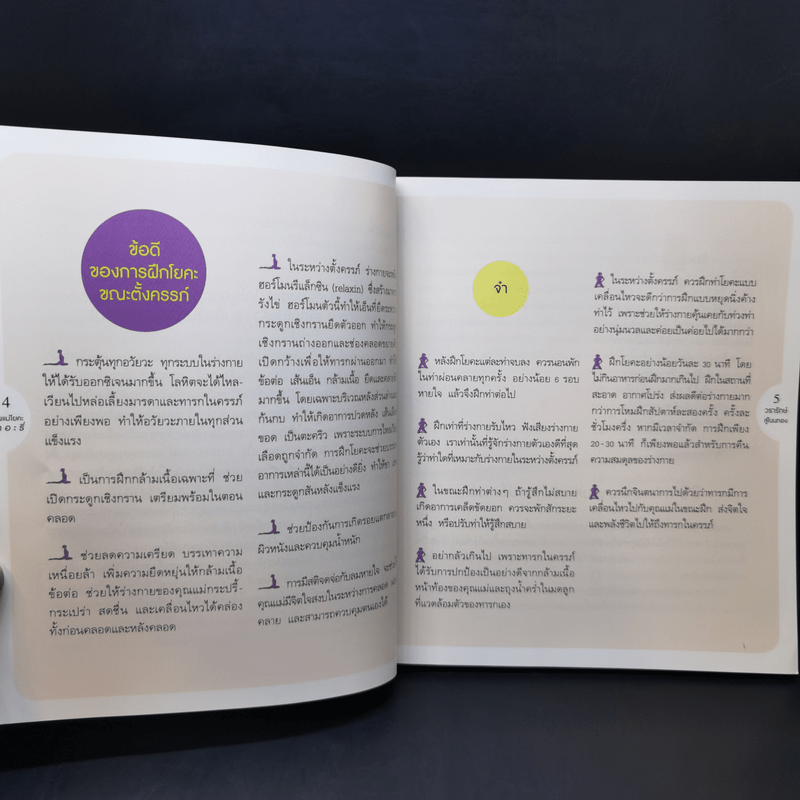 ข้อดี
ของการฝึกโยคะ
ขณะตั้งครรภ์
กระตุ้นทุกอวัยวะ ทุกระบบในร่างกาย
ให้ได้รับออกซิเจนมากขึ้น โลหิตจะได้ไหล-
เวียนไปหล่อเลี้ยงมารดาและทารกในครรภ์
อย่างเพียงพอ ทำให้อวัยวะภายในทุกส่วน
แข็งแรง
เป็นการฝึกกล้ามเนื้อเฉพาะที่ ช่วย
เปิดกระดูกเชิงกราน เตรียมพร้อมในตอน
คลอด
ช่วยลดความเครียด บรรเทาความ
เหนื่อยล้า เพิ่มความยืดหยุ่นให้กล้ามเนื้อ
ข้อต่อ ช่วยให้ร่างกายของคุณแม่กระปรี้-
กระเปร่า สดชื่น และเคลื่อนไหวได้คล่อง
ทั้งก่อนคลอดและหลังคลอด
ในระหว่างตั้งครรภ์ ร่างกายจะ
ฮอร์โมนรีแล็กซิน (relaxin) ซึ่งสร้าง
รังไข่ ฮอร์โมนตัวนี้ทำให้เอ็นที่ยึด
กระดูกเชิงกรานยืดตัวออก ทำให้กระดูก
เชิงกรานถ่างออกและช่องคลอดขยาย
เปิดกว้างเพื่อให้ทารกผ่านออกมา
ข้อต่อ เส้นเอ็น กล้ามเนื้อ ยืดและคลาย
มากขึ้น โดยเฉพาะบริเวณหลังส่วนล่าง
ก้นกบ ทำให้เกิดอาการปวดหลัง เส้นเอ็น
น่อง เป็นตะคริว เพราะระบบการไหลเวียน
เลือดถูกจำกัด การฝึกโยคะจะช่วยบรรเทา
อาการเหล่านี้ได้เป็นอย่างดียิ่ง ทำให้ขา
และกระดูกสันหลังแข็งแรง
ช่วยป้องกันการเกิดรอยแตกลาย
ผิวหนังและควบคุมน้ำหนัก
การมีสติจดจ่อกับลมหายใจ จะช่วย
คุณแม่มีจิตใจสงบในระหว่างการคลอด
คลาย และสามารถควบคุมตนเองได้
4
จำ
หลังฝึกโยคะแต่ละท่าจบลง ควรนอนพัก
ในท่าผ่อนคลายทุกครั้ง อย่างน้อย 6 รอบ
หายใจ แล้วจึงฝึกท่าต่อไป
ฝึกเท่าที่ร่างกายรับไหว ฟังเสียงร่างกาย
ตัวเอง เราเท่านั้นที่รู้จักร่างกายตัวเองดีที่สุด
รู้ว่าท่าใดที่เหมาะกับร่างกายในระหว่างตั้งครรภ์
ในขณะฝึกท่าต่างๆ ถ้ารู้สึกไม่สบาย
เกิดอาการเคล็ดขัดยอก ควรจะพักสักระยะ
หนึ่ง หรือปรับท่าให้รู้สึกสบาย
อย่ากลัวเกินไป เพราะทารกในครรภ์
ได้รับการปกป้องเป็นอย่างดีจากกล้ามเนื้อ
หน้าท้องของคุณแม่และถุงน้ำคร่ำในมดลูก
ที่แวดล้อมตัวของทารกเอง
ในระหว่างตั้งครรภ์ ควรฝึกท่าโยคะแบบ
เคลื่อนไหวจะดีกว่าการฝึกแบบหยุดนิ่งค้าง
ท่าไว้ เพราะช่วยให้ร่างกายคุ้นเคยกับท่วงท่า
อย่างนุ่มนวลและค่อยเป็นค่อยไปได้มากกว่า
ฝึกโยคะอย่างน้อยวันละ 30 นาที โดย
ไม่กินอาหารก่อนฝึกมากเกินไป ฝึกในสถานที่
สะอาด อากาศโปร่ง ส่งผลดีต่อร่างกายมาก
กว่าการโหมฝึกสัปดาห์ละสองครั้ง ครั้งละ
ชั่วโมงครึ่ง หากมีเวลาจำกัด การฝึกเพียง
20-30 นาที ก็เพียงพอแล้วสำหรับการคืน
ความสมดุลของร่างกาย
ควรนึกจินตนาการไปด้วยว่าทารกมีการ
เคลื่อนไหวไปกับคุณแม่ในขณะฝึก ส่งจิตใจ
และพลังชีวิตไปให้ถึงทารกในครรภ์
5
วรารักษ์
สู่โนนทอง